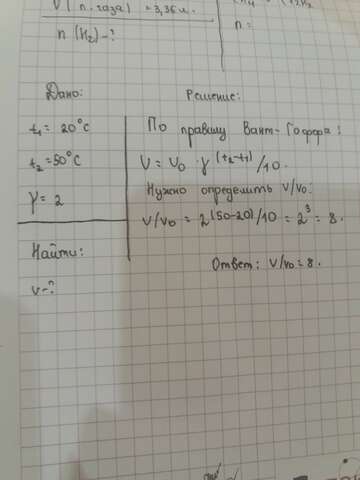 V (п. газа) = 3,36 л.
n (H₂) - ?
n =
Дано:
t₁ = 20°C
t₂ = 50°C
γ = 2
Найти:
v - ?
Решение:
По правилу Вант-Гоффа:
V = V₀ · γ^(t₂-t₁)/10.
Нужно определить V/V₀:
V/V₀ = 2^(50-20)/10 = 2³ = 8.
Ответ: V/V₀ = 8.